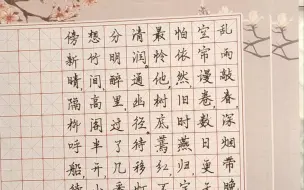 乱雨敲春深烟带
空帘谩卷，数日更
怕依然、旧时燕归，
最怜他、树底蔫红，
清润。通幽径。待移
分明醉里，过了几
想竹间、高阁半开，
傍新晴、隔柳呼船，